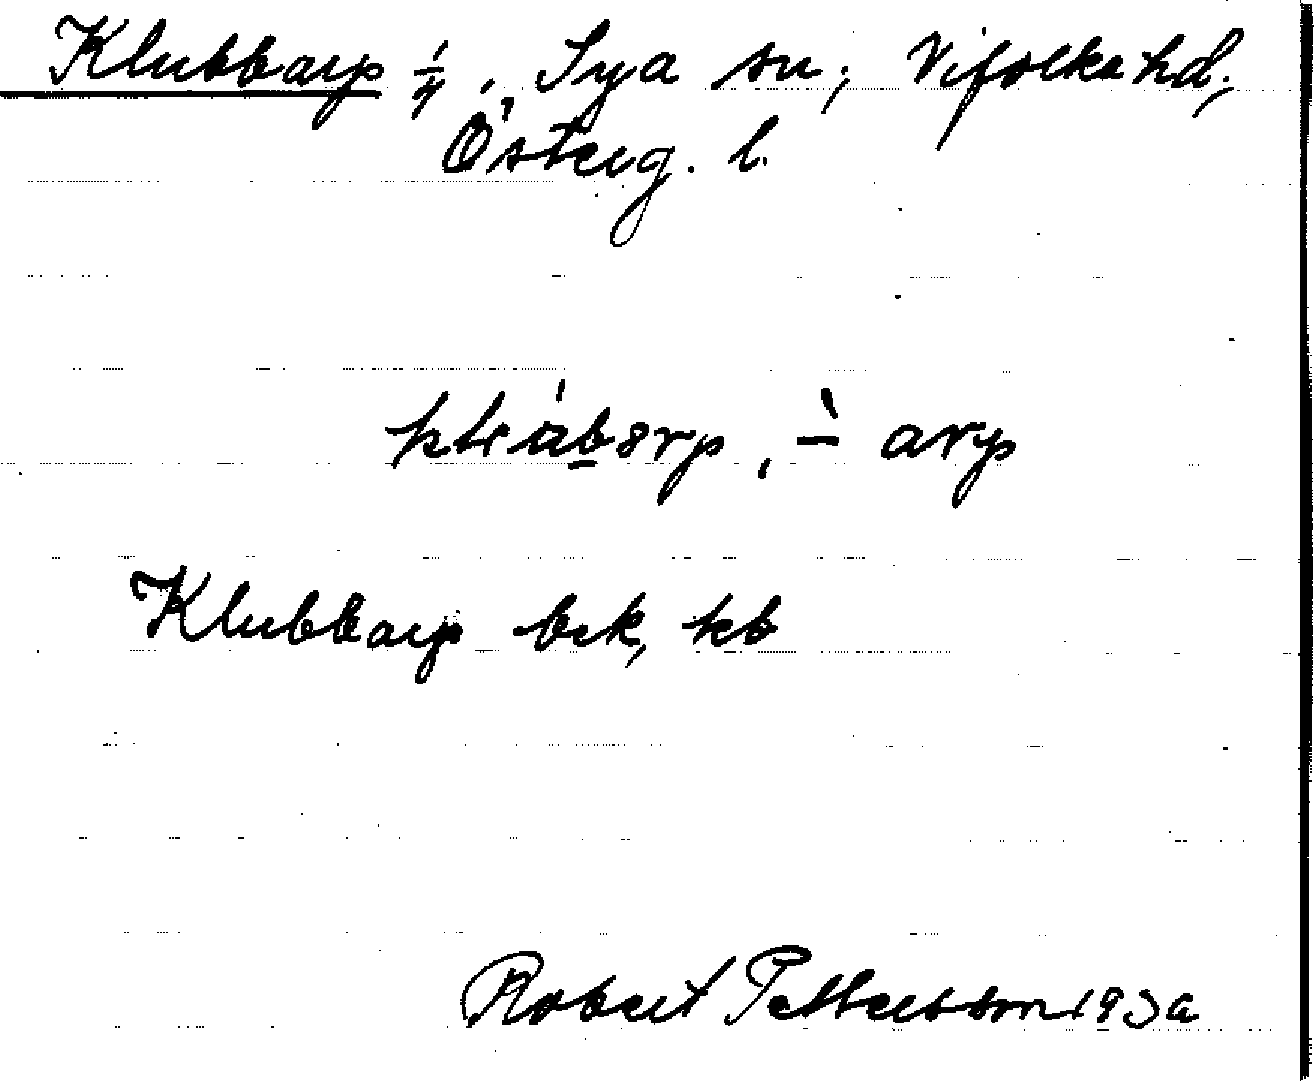 Klubbarp ¼, Sya sn, Vifolka hd,
Österg. l.
arp
Klubbarp bek, kb
Robert Pettersson 193a